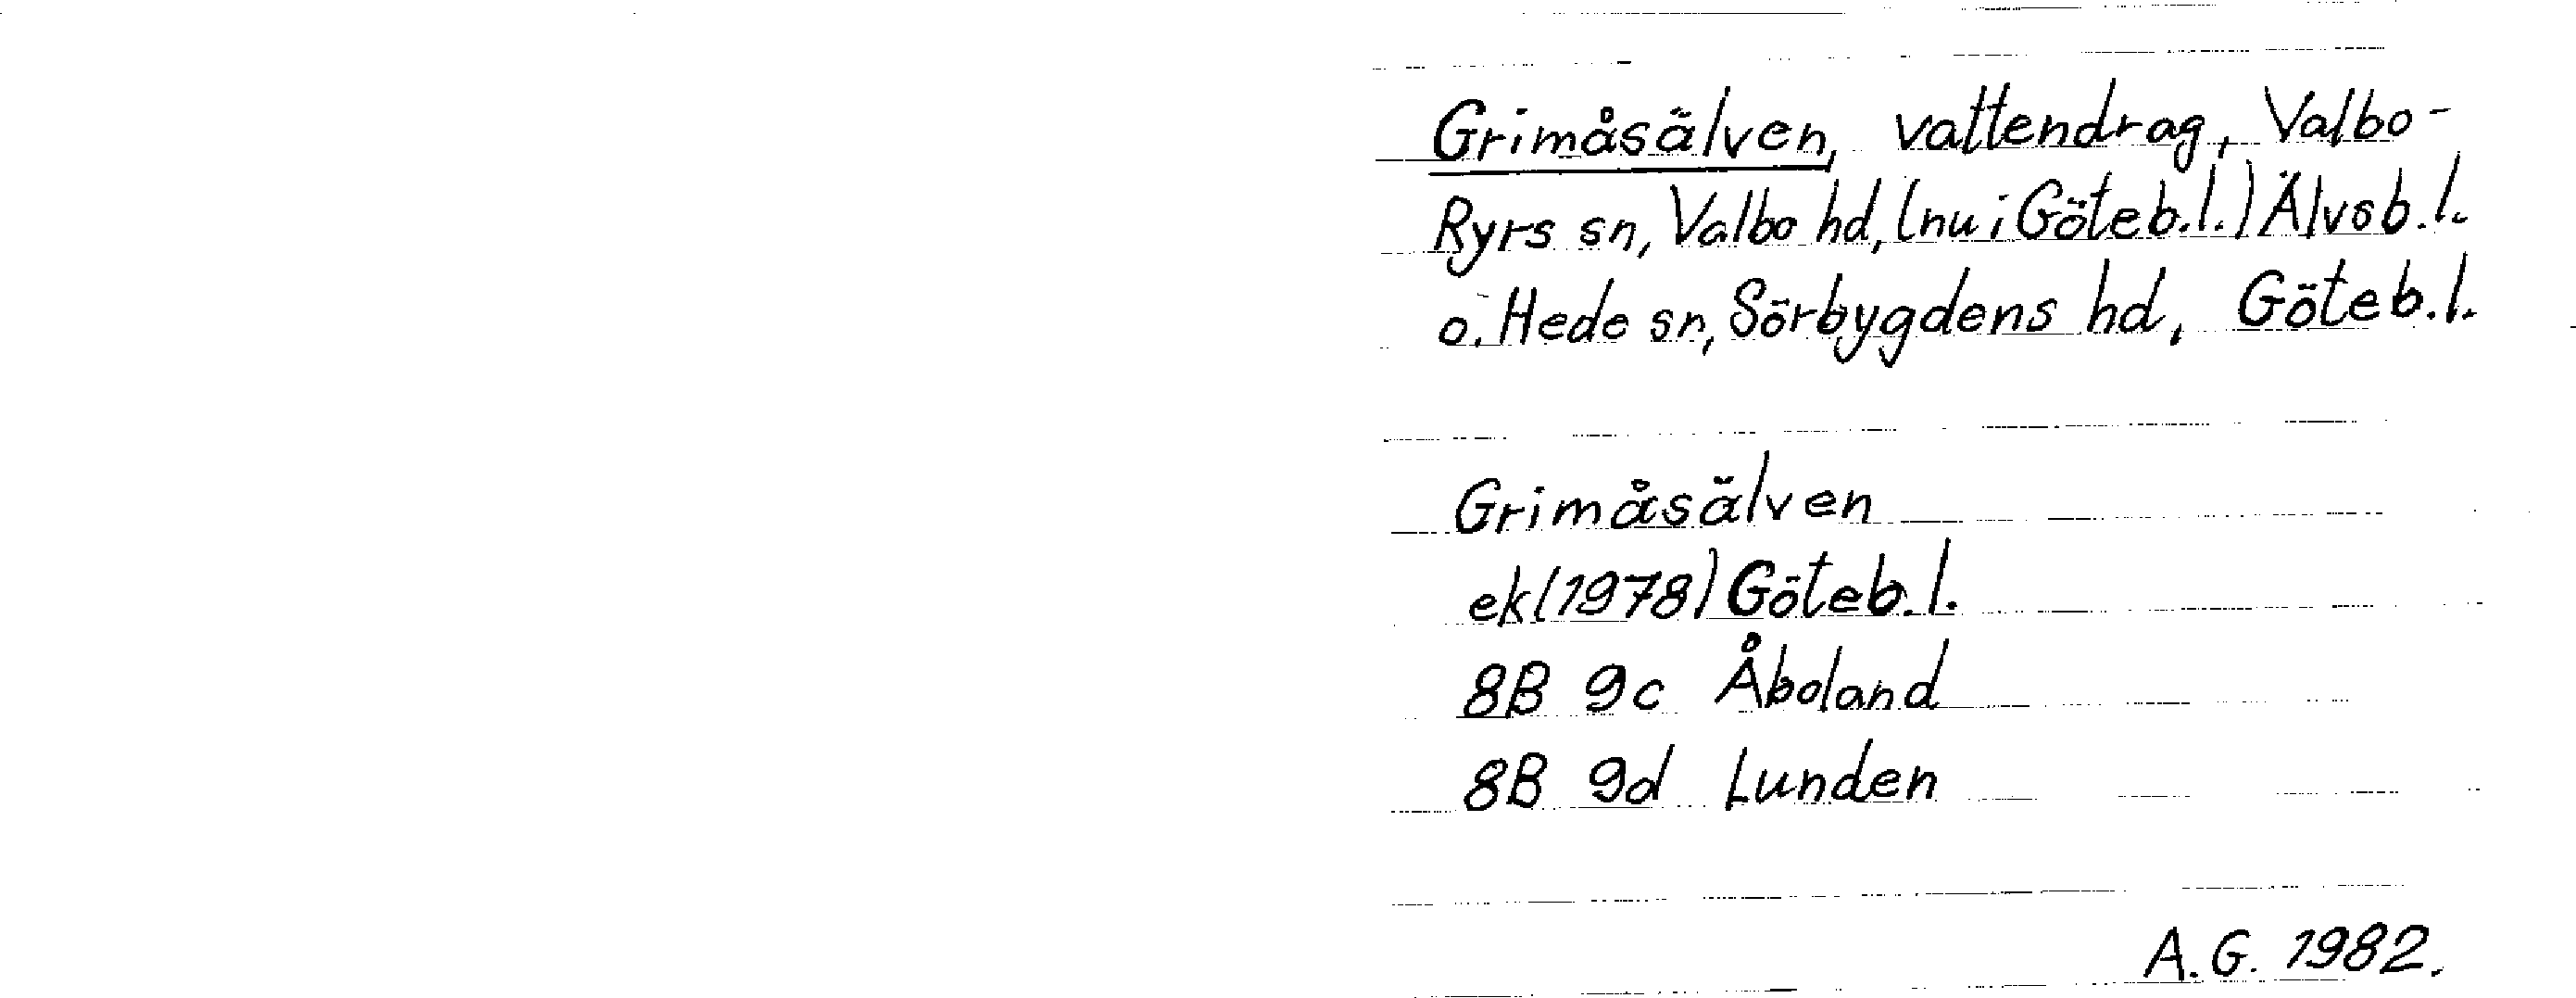 Grimåsälven, vattendrag, Valbo-
Ryrs sn, Valbo hd, (nu i Göteb.l.) Älvsb.l.
o. Hede sn, Sörbygdens hd, Göteb.l.
Grimåsälven
ek (1978) Göteb.l.
8B 9c Åboland
8B 9d Lunden
A.G. 1982.